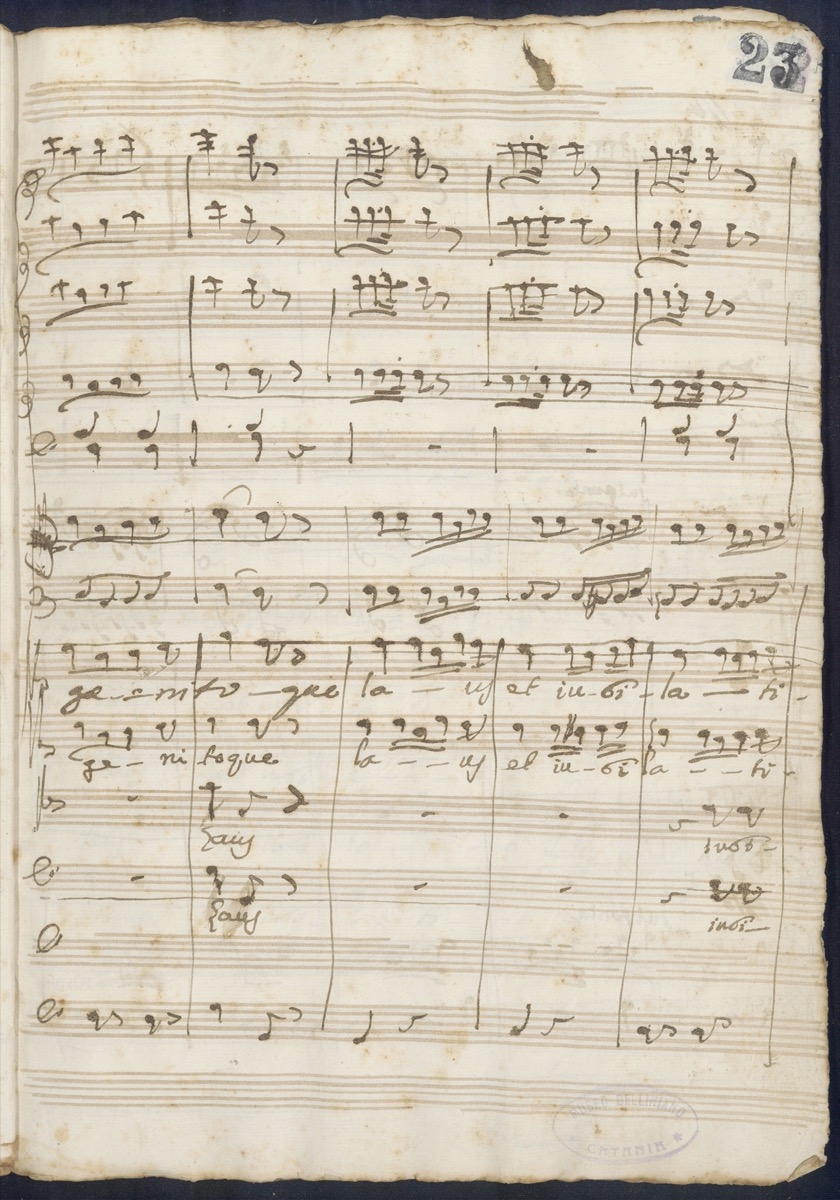 23
ge - - ni to - que la - - us et iu - bi - la - - ti -
ge - - ni toque la - - - us et iu - bi la - - - ti -
Laus iubi -
Laus iubi -
MUSEO BELLINIANO
CATANIA